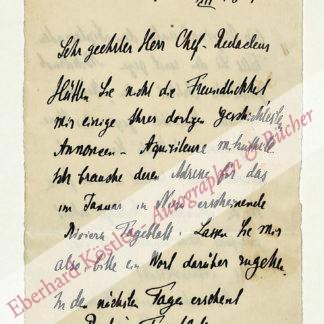 Sehr geehrter Herr Chef-Redacteur
Hätten Sie nicht die Freundlichkeit
mir einige Ihrer dortigen
Annoncen-Aquisiteure
Ich brauche deren Adresse für das
im Januar in erscheinende
Riviera Tageblatt. Lassen Sie mir
also bitte ein Wort darüber zugehen.
In den nächsten Tagen erscheint
Eberhard Köstler Autographen & Bücher